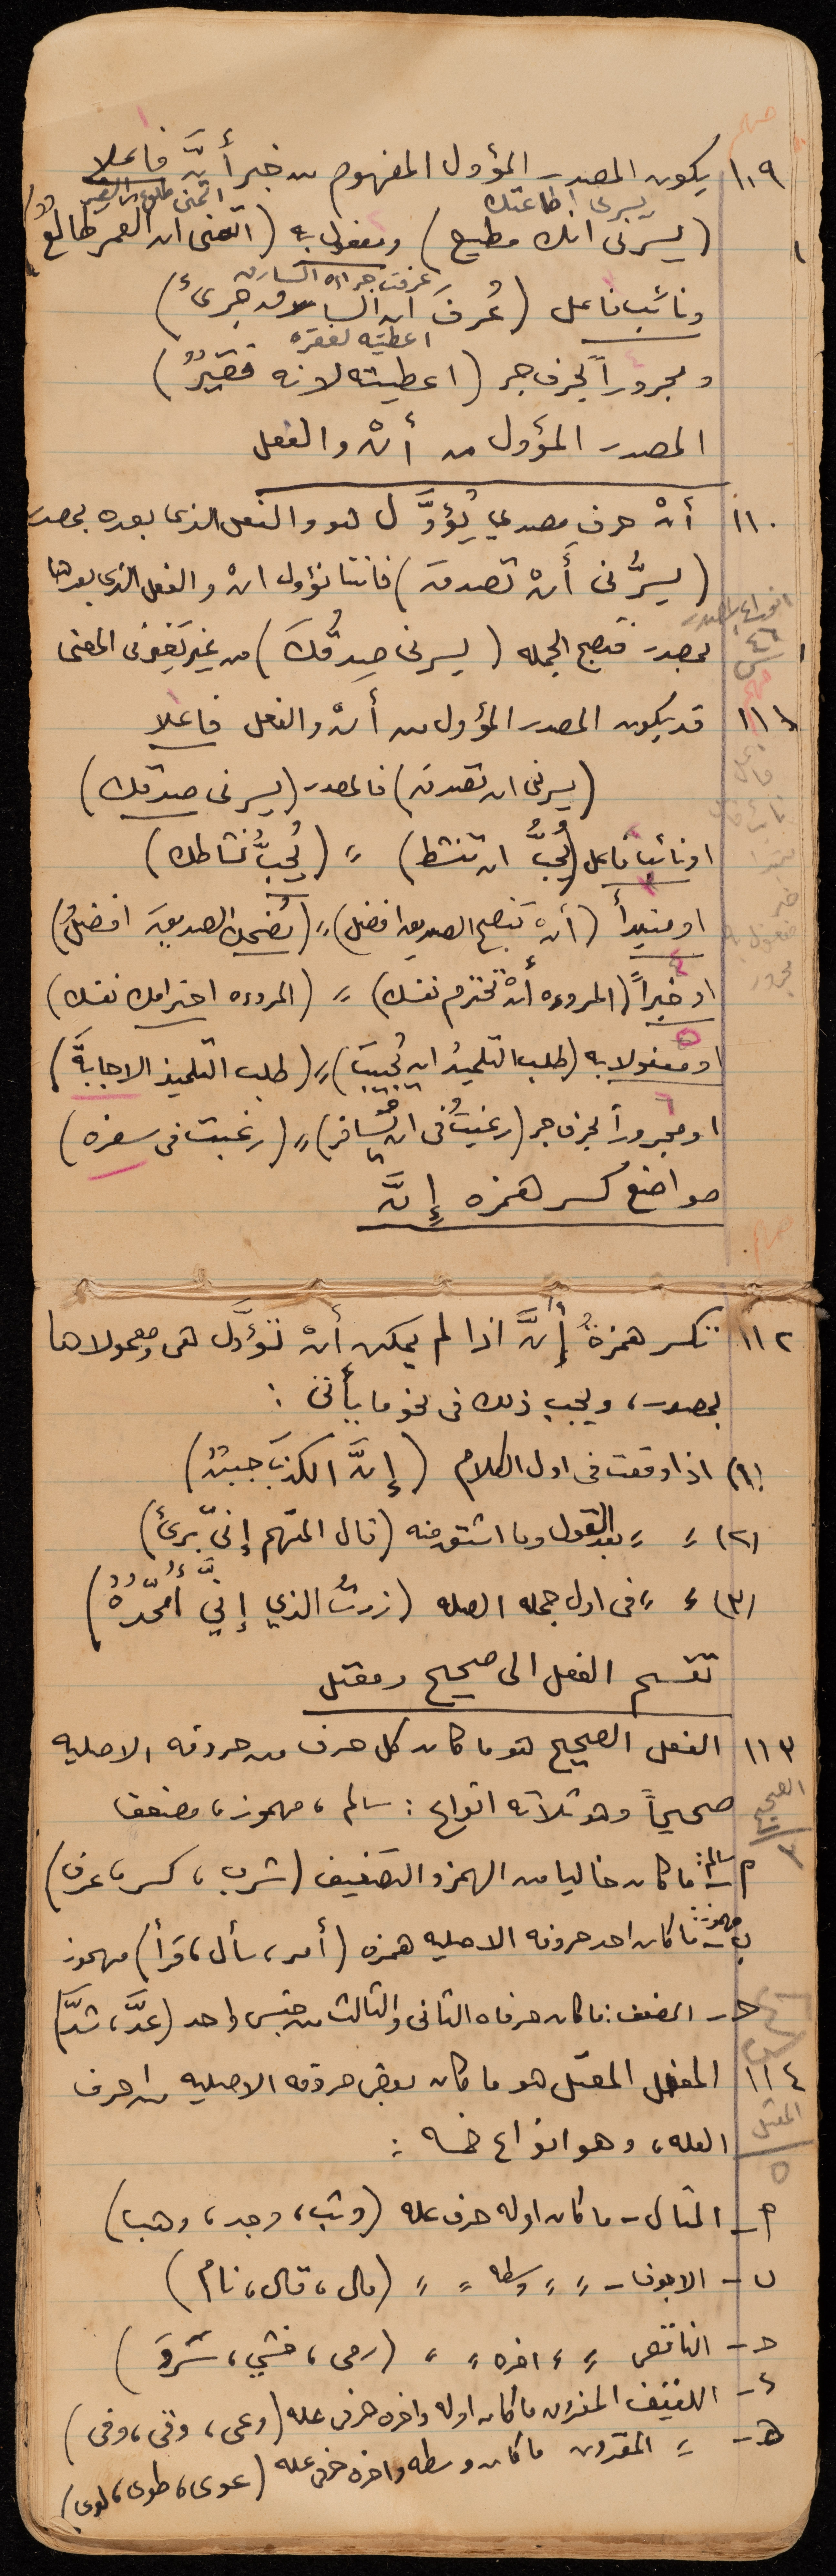 ١٠٩ يكون المصدر المؤول المفهوم من خبر أنَّ فاعلا
يسرني اطاعتك
(يسرني انك مطيع) ومفعول به (اتمنى ان القمر طالعٌ)
عرفت جراءة السارق
ونائب فاعل (عُرفَ ان السارق جرئ)
اعطيته لفقره
ومجروراً بحرف جر (اعطيته لانه فقيرٌ)
المصدر المؤول من أنْ والفعل
١١٠ أنْ حرف مصدري يُؤوَّل هو والفعل الذي بعده بمصدر
(يسرُّني أنْ تصدقَ) فاننا نؤول انْ والفعل الذي بعدها
بمصدر فتصبح الجمله (يسرني صِدقُكَ) من غير تغيير في المعنى
١١١ قد يكون المصدر المؤول من أنْ والفعل فاعلا
(يسرني ان تصدق) فالمصدر (يسرني صدقك)
او نائب فاعل (يُحَبُّ ان تنشط)〃 (يُحَبُّ نشاطك)
او مبتدأ (أنْ تنصح الصديق افضل) 〃 (نُصْحك الصديقَ افضلُ)
او خبراً (المروءه أنْ تحترم نفسك) 〃 (المروءه احترامك نفسك)
او مفعولا به (طلب التلميذُ ان تُجيبَ) 〃 (طلب التلميذ الاجابةَ)
او مجروراً بحرف جر (رغبتُ في ان يُسافر) 〃 (رغبت في سفره)
مواضع كسر همزه إنَّ
١١٢ تكسر همزةُ إنَّ اذا لم يمكن أنْ تؤوَّل هي ومعمولاها
بمصدر، ويجب ذلك في نحو ما يأتي :
(١) اذا وقعت في اول الكلام (إنَّ الكذبَ جبنٌ)
(٢) 〃 〃 بعد القول وما اشتق منه (قال المتهم إنيّ برئ)
(٣) 〃 〃 في اول جمله الصله (زرتُ الذي إنيِّ أُمَجِّدُهُ)
تقسيم الفعل الى صحيح ومعتل
١١٣ الفعل الصحيح هو ما كان كل حرف من حروفه الاصليه
الصحيح ٣
صحيحاً وهو ثلاثه انواع : سالم، مهموز، مضعف
أ- سالم: ما كان خاليا من الهمز والتضعيف (شرب، كسر، عرف)
ب- مهموز: ما كان احد حروفه الاصليه همزه (أمر، سأل، قرأ) مهموز
ح- المضعف: ما كان حرفاه الثاني والثالث من جنس واحد (عدَّ، شدَّ)
١١٤ الفعل المعتل هو ما كان بعض حروفه الاصليه من احرف
المعتل ٥
العله، وهو انواع خمسه :
أ- المثال - ما كان اوله حرف عله (وثب، وجد، وهب)
ب- الاجوف - 〃 〃 وسطه 〃 〃 (مال، قال، نام)
ح- الناقص 〃 〃 اخره 〃 〃 (رمى، خشي، سَرُوَ)
د- اللفيف المفروق ما كان اوله واخره حرفي عله (وعى، وقى، وفى)
هـ- 〃 المقرون ما كان وسطه واخره حرفي عله (عوى، طوى، لوى)